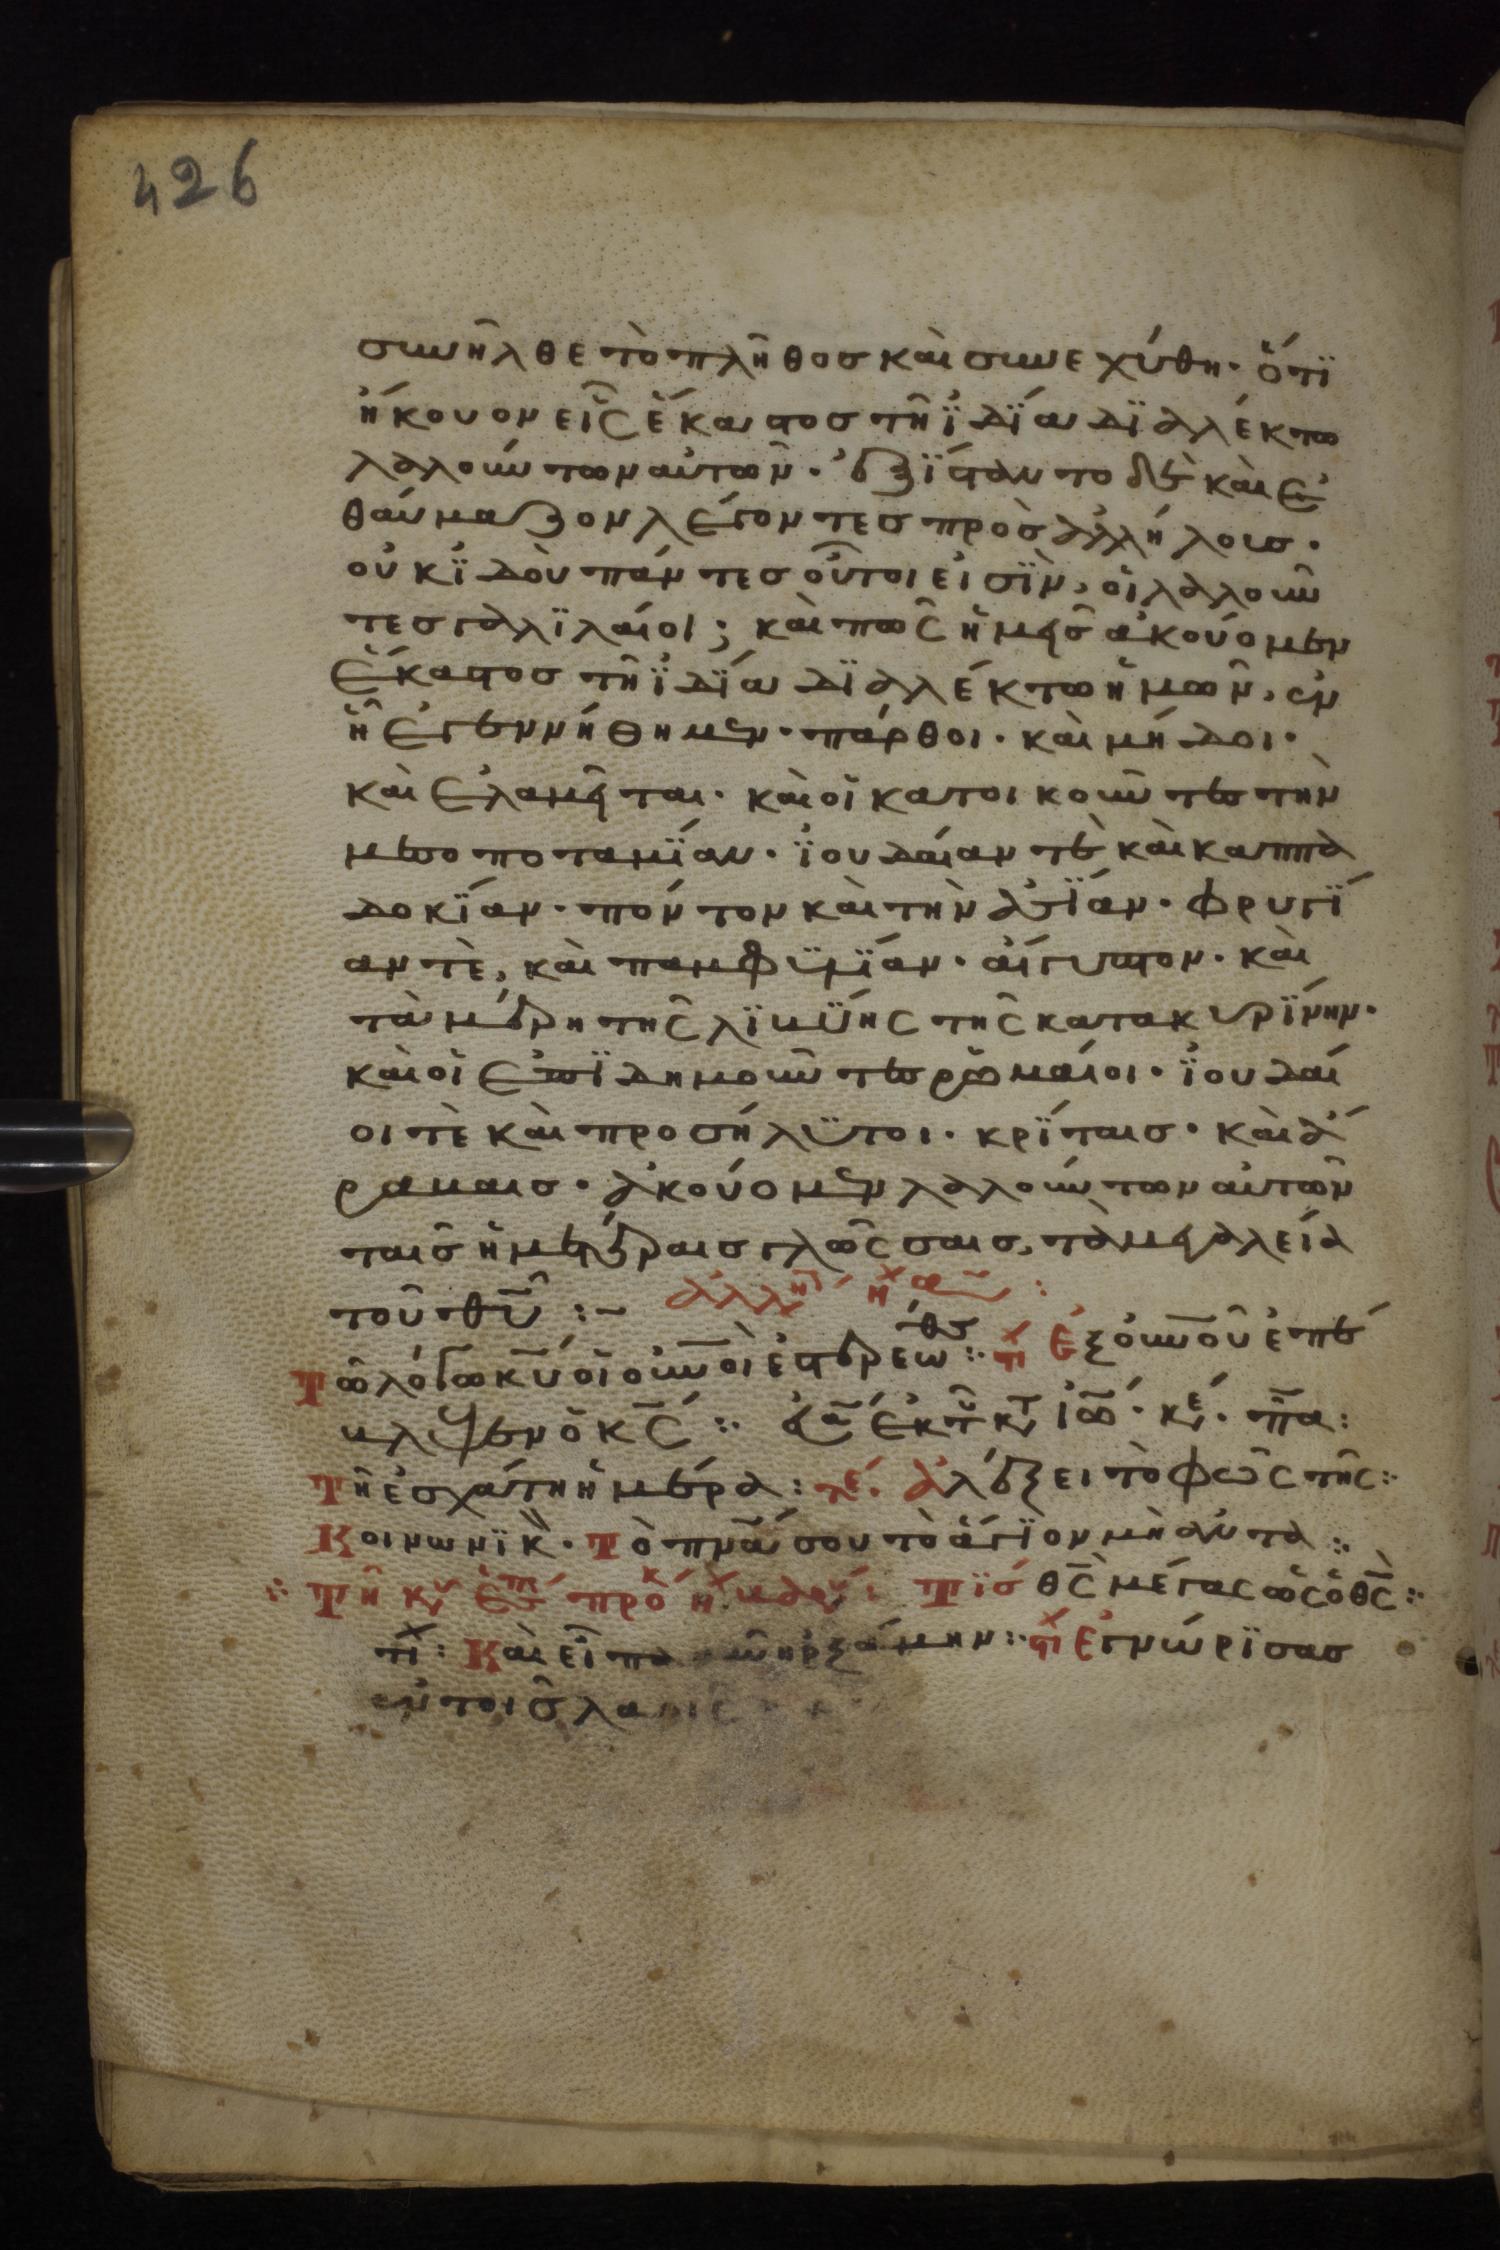 426
συνῆλθε τὸ πλῆθοσ καὶ συνεχύθη· ὅτϊ
ἤκουον εἷς ἕκαστοσ τῆ ϊδΐα δϊαλέκτω
λαλούντων αὐτῶν· ἐξΐσταντο δὲ καὶ ἐ
θαύμαζον λέγοντεσ πρὸσ ἀλλήλουσ·
οὐκ ϊδοὺ πάντεσ οὗτοι εἰσΐν, οἱ λαλοῦν
τεσ γαλϊλαίοι; καὶ πῶς ἡμεῖσ ἀκούομεν
ἕκαστοσ τῆ ϊδΐα δϊαλέκτω ἡμῶν, ἐν
ἧ ἐγεννήθημεν· πάρθοι· καὶ μήδοι·
καὶ ἐλαμεῖται· καὶ οἱ κατοικοῦντεσ τὴν
μεσοποταμΐαν· ϊουδαίαν τὲ καὶ καππα
δοκΐαν· πόντον καὶ τὴν ἀσΐαν· φρυγΐ
αν τὲ, καὶ παμφϋλΐαν· αἴγυπτον· καὶ
τὰ μέρη τῆς λϊβΰης τῆς κατα κυρΐνην·
καὶ οἱ ἐπϊδημοῦντεσ ῥωμαίοι· ϊουδαί
οι τὲ καὶ προσήλϋτοι· κρΐταισ· καὶ ἄ
ραβαισ· ἀκούομεν λαλούντων αὐτῶν
ταισ ἡμετέραισ γλώσσαισ, τὰ μεγαλεία
τοῦ θῦ :~ ἀλλη
Τῶ λόγω κῦ οἱ οὐνοὶ ἐστερεώθησ :· στχ Ἐξ οὐνοῦ ἐπέ
βλεψεν ὁ κς :·
Τῆ ἐσχάτη ἡμέρα : τέ. ἀλέξει τὸ φῶς τῆς :·
Κοινωνϊκ. Τὸ πνᾶ σου τὸ ἅγϊον μὴ ἀντα :·
Τῆ προκ Τΐσ θς μέγασ ὡς ὁ θς :·
στχ : Καὶ εἶπα νῦν ἠρξάμην :· στχ ἐγνώρϊσασ
ἐν τοῖσ λαοῖς